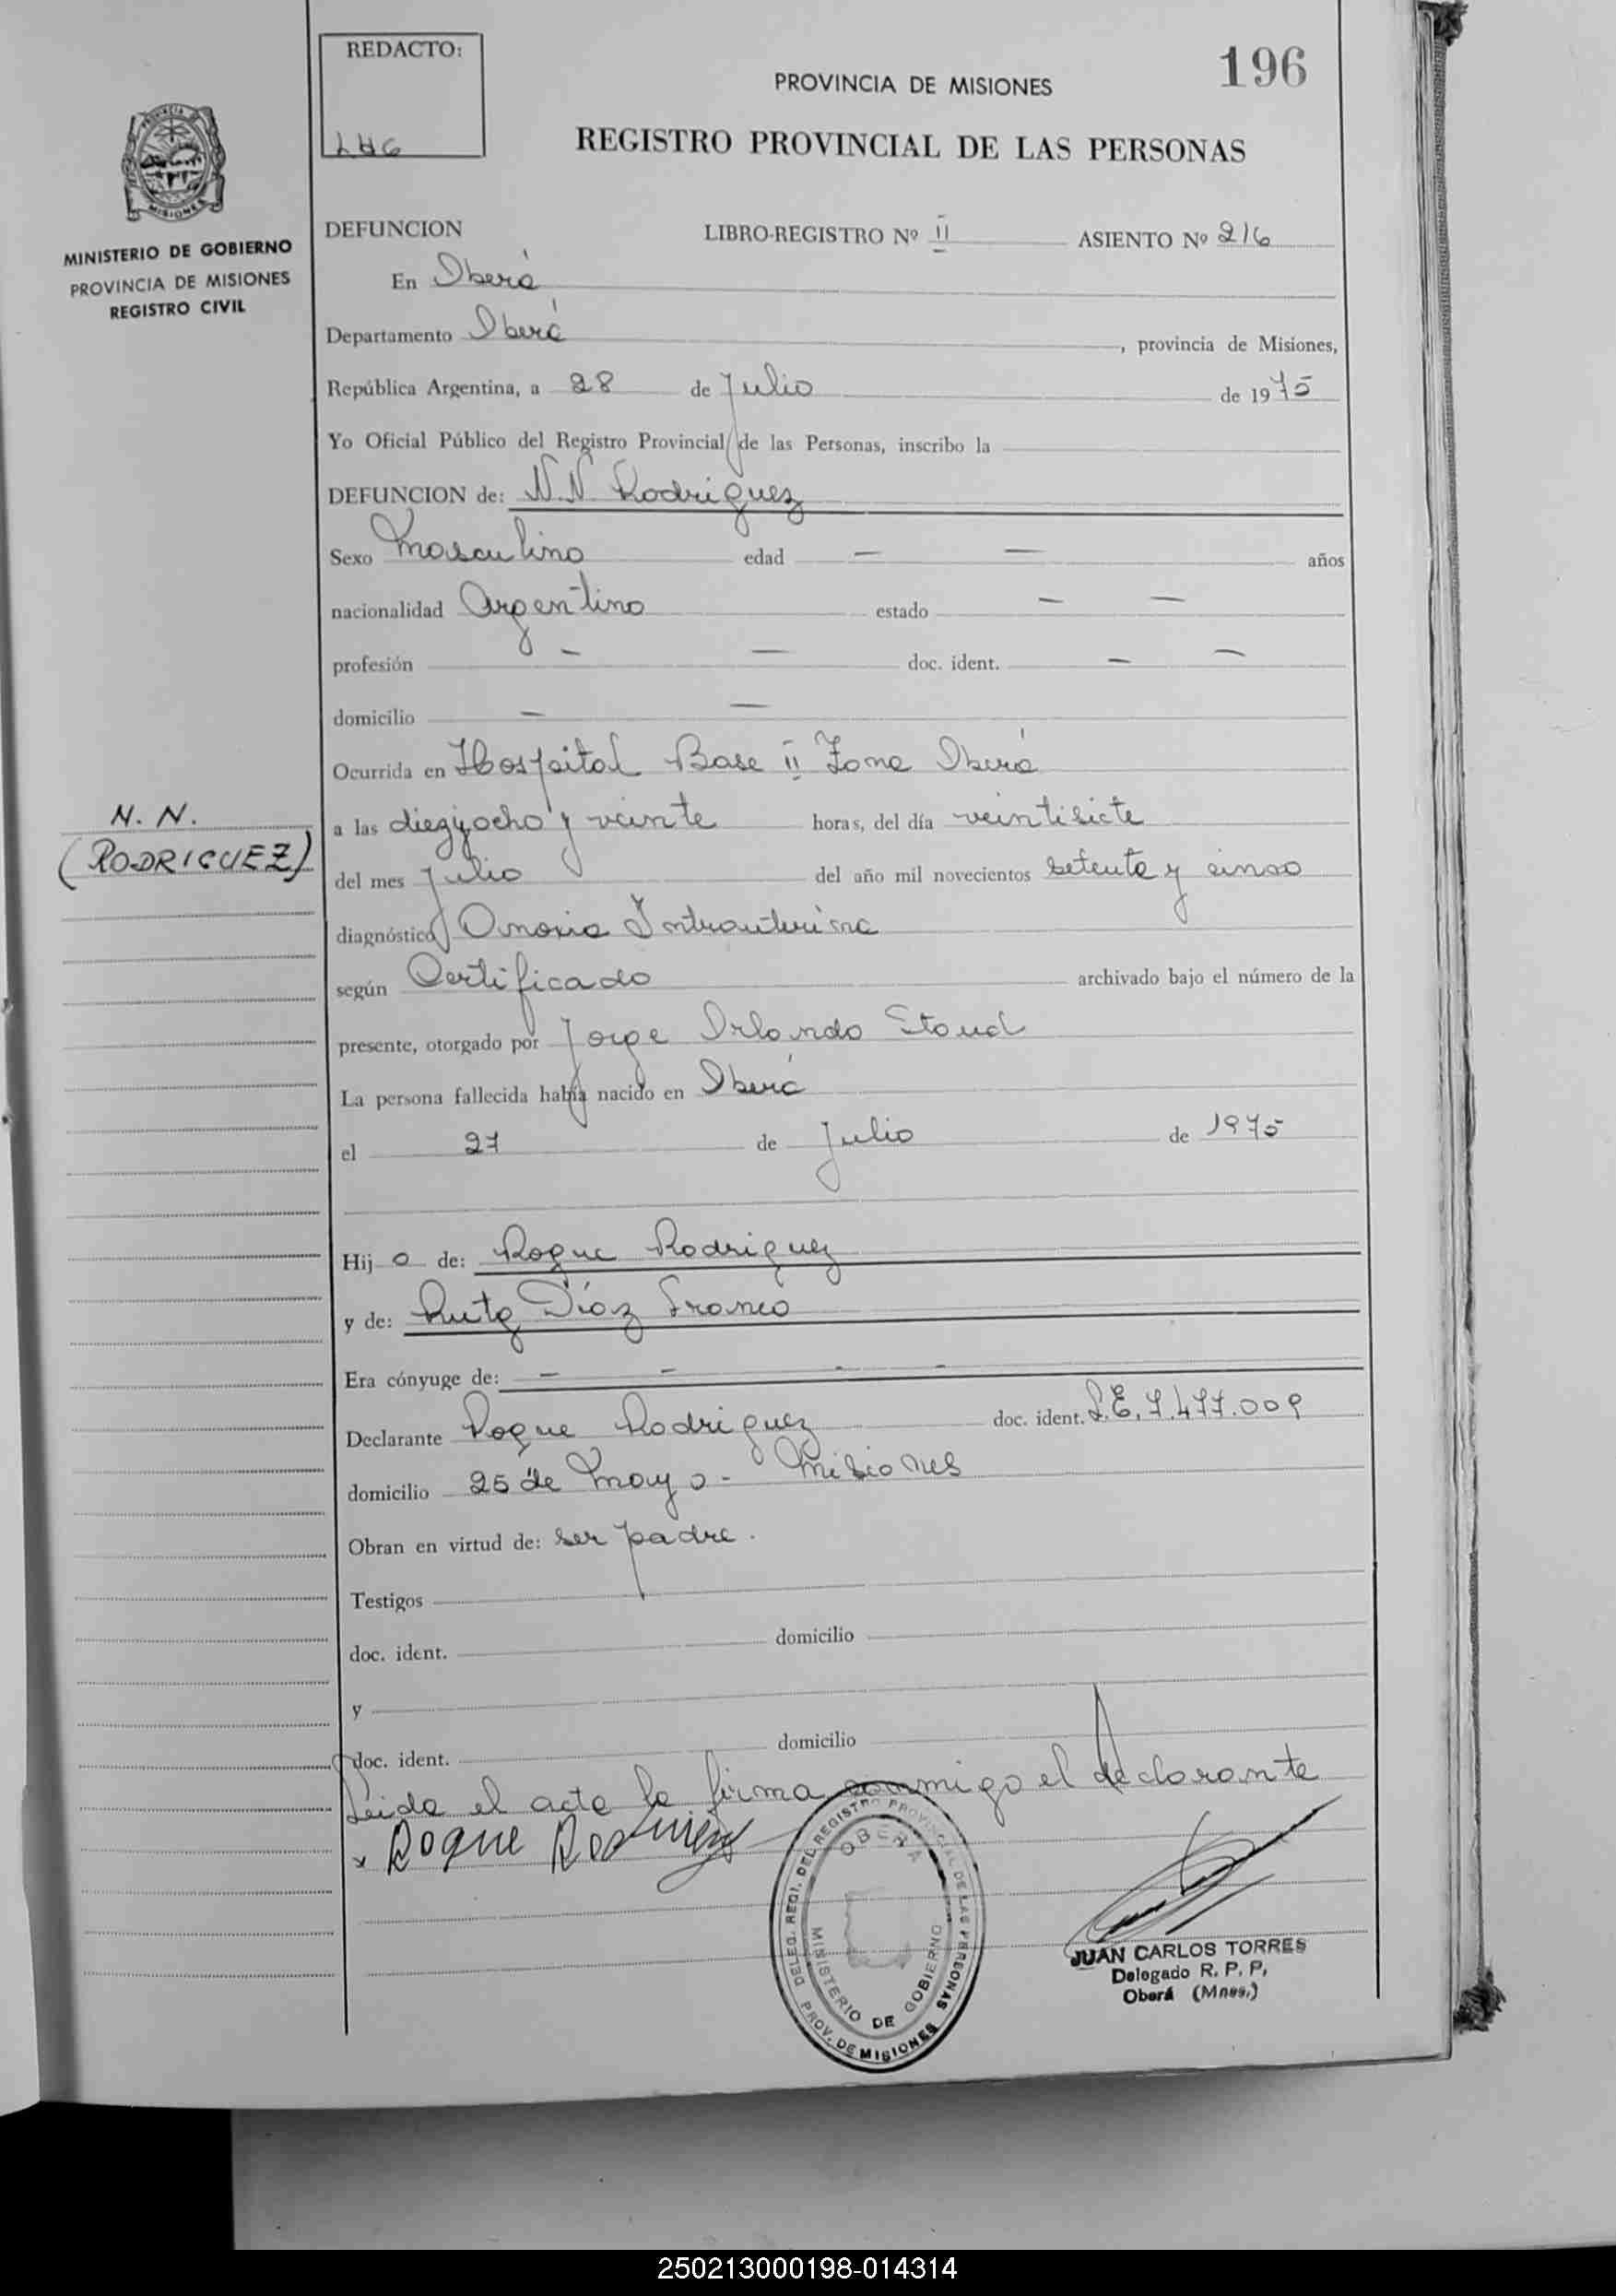 REDACTO:
LHG
196
PROVINCIA DE MISIONES
REGISTRO PROVINCIAL DE LAS PERSONAS
MINISTERIO DE GOBIERNO
PROVINCIA DE MISIONES
REGISTRO CIVIL
DEFUNCION LIBRO-REGISTRO Nº II ASIENTO Nº 216
En Oberá
Departamento Oberá, provincia de Misiones,
República Argentina, a 28 de Julio de 1975
Yo Oficial Público del Registro Provincial de las Personas, inscribo la
DEFUNCION de: N.N. Rodriguez
Sexo Masculino edad — — años
nacionalidad Argentino estado — —
profesión — — doc. ident. — —
domicilio — —
Ocurrida en Hospital Base II Zona Oberá
N. N.
(RODRIGUEZ)
a las diezyocho y veinte horas, del día veintisiete
del mes Julio del año mil novecientos setenta y cinco
diagnóstico Anoxia Intrauterina
según Certificado archivado bajo el número de la
presente, otorgado por Jorge Orlando
La persona fallecida había nacido en Oberá
el 27 de Julio de 1975
Hijo de: Roque Rodriguez
y de: Díaz Franco
Era cónyuge de: — — - -
Declarante Roque Rodriguez doc. ident. L.E. 7.477.009
domicilio 25 de Mayo - Misiones
Obran en virtud de: ser padre.
Testigos
doc. ident. domicilio
y
doc. ident. domicilio
Leida el acta la firma conmigo el declarante
x Roque Rodriguez
DELEG. REGI. DEL REGISTRO PROVINCIAL DE LAS PERSONAS
OBERA
MINISTERIO DE GOBIERNO
PROV. DE MISIONES
JUAN CARLOS TORRES
Delegado R. P. P,
Oberá (Mnes.)
250213000198-014314